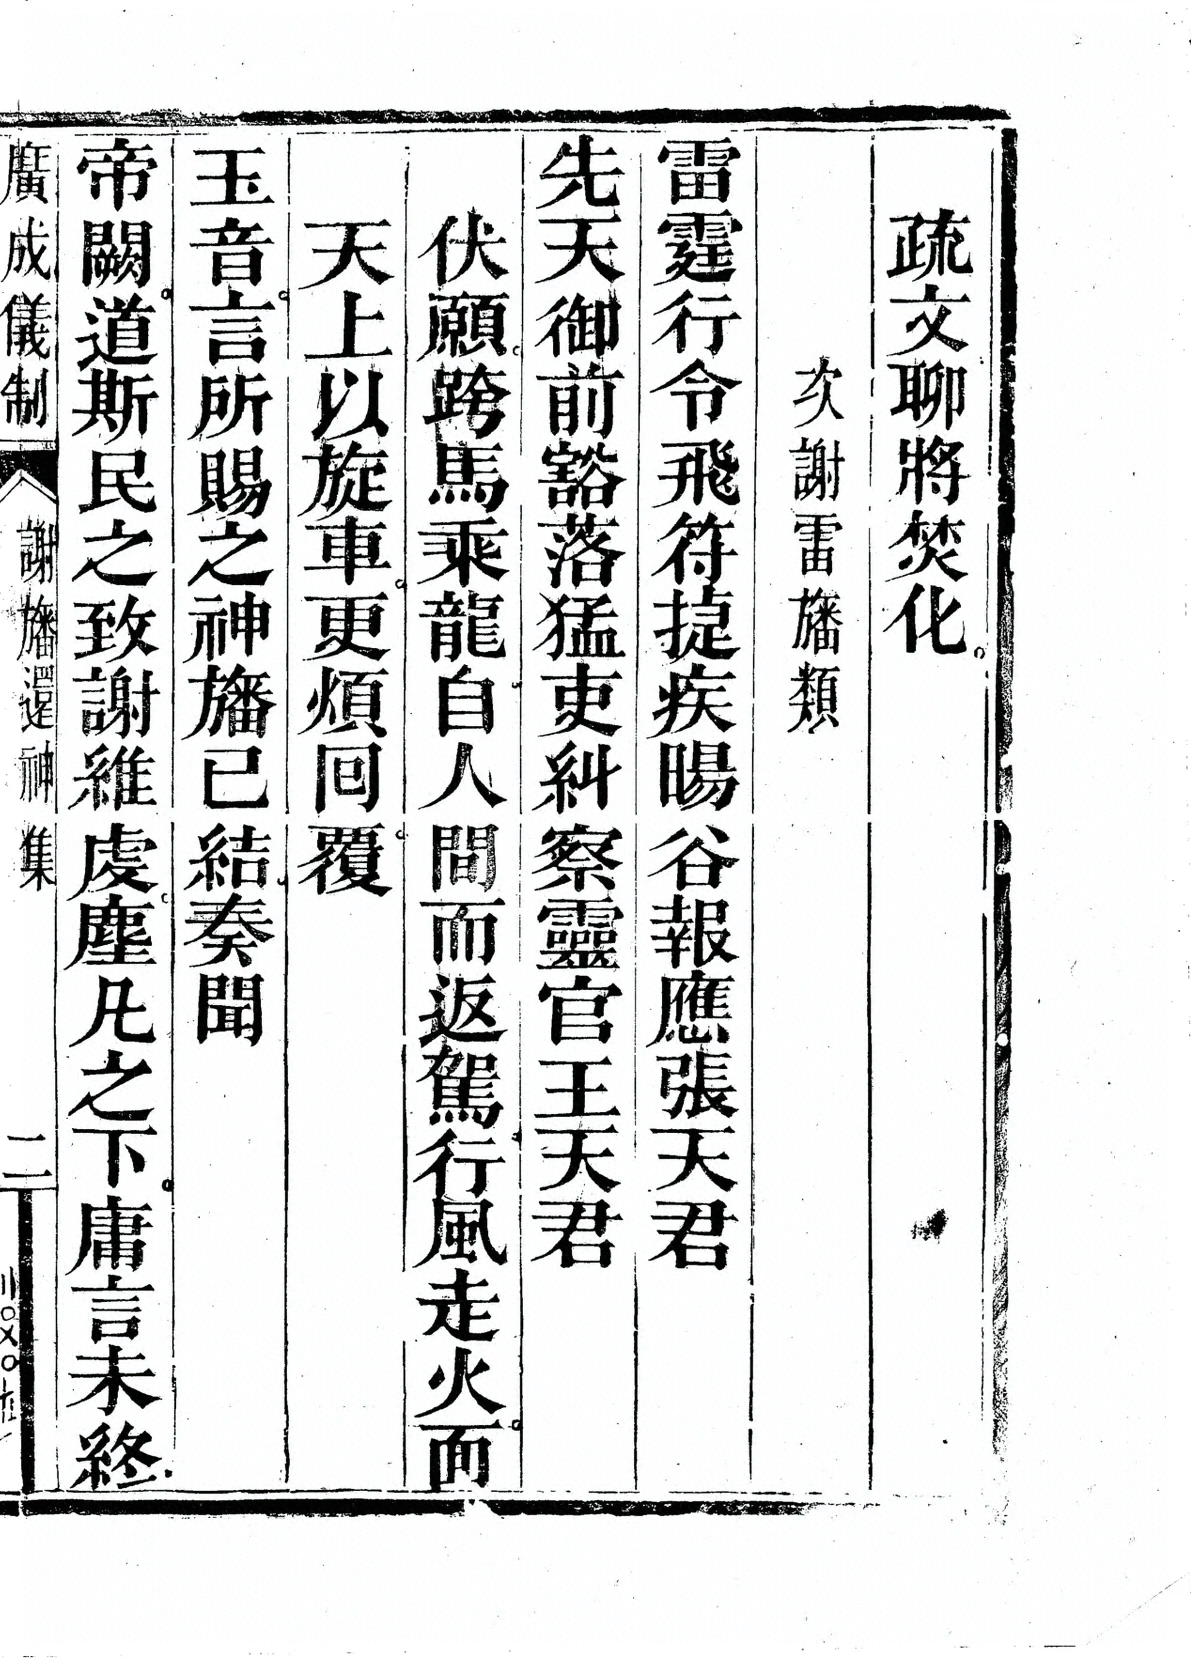 疏文聊將焚化
次謝雷旛類
雷霆行令飛符捷疾暘谷報應張天君
先天御前豁落猛吏糾察靈官王天君
伏願跨馬乘龍自人間而返駕行風走火面
天上以旋車更煩回覆
玉音言所賜之神旛已結奏聞
帝闕道斯民之致謝維虔塵凡之下庸言未終
廣成儀制
謝旛還神集
二